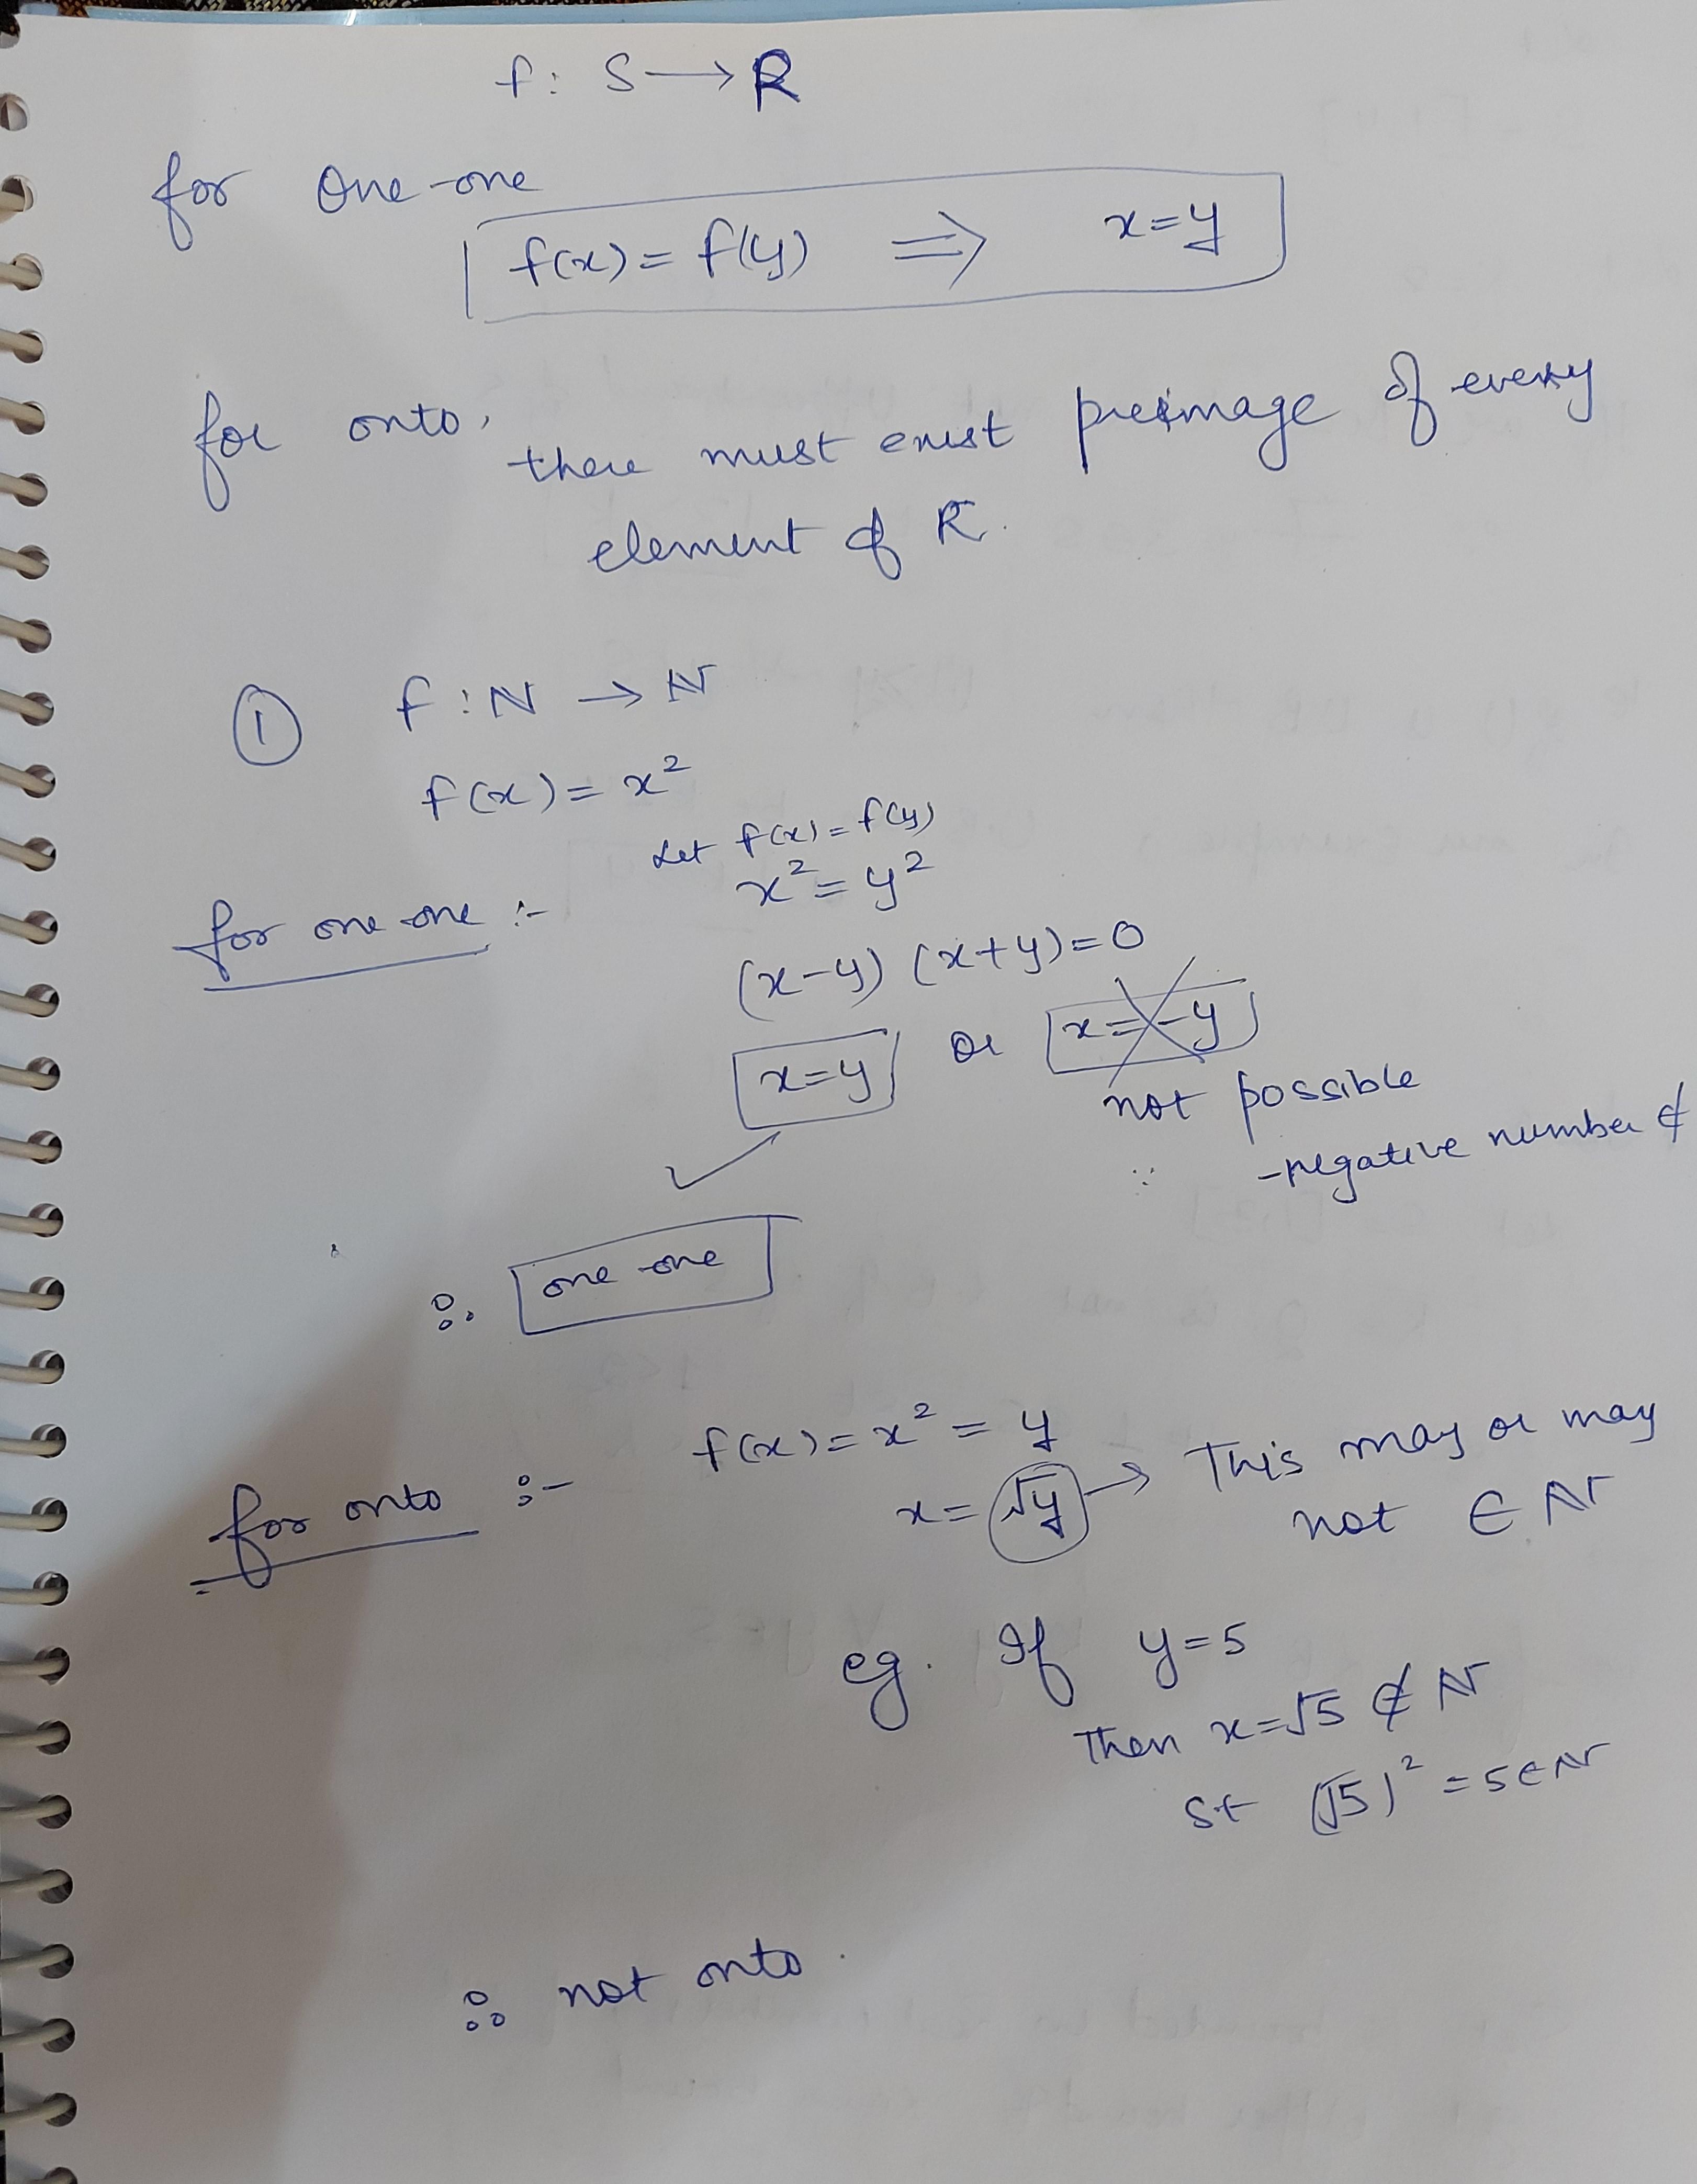 f: S → R
for One-one
f(x) = f(y) ⇒ x=y
for onto, there must exist preimage of every
element of R.
① f : N → N
f(x) = x²
Let f(x) = f(y)
for one one :- x² = y²
(x-y) (x+y) = 0
x=y or x=-y
not possible
∵ -negative number ∉
∴ one-one
f(x) = x² = y
for onto :- x = √y → This may or may
not ∈ N
eg. If y=5
Then x=√5 ∉ N
st (√5)² = 5 ∈ N
∴ not onto.